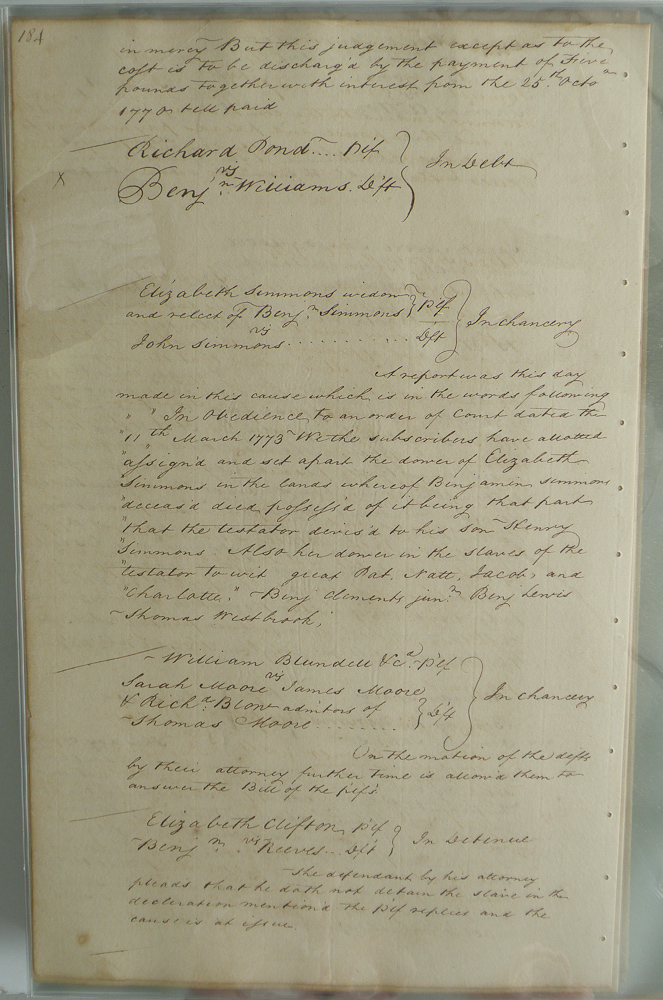 184
in mercy But this judgement except as to the
cost is to be discharg'd by the payment of Five
pounds together with interest from the 25th Octo
1770 till paid
Richard Pond .... Plf
vs
Benjn Williams. Dft
In Debt
x
Elizabeth Simmons widow
and relect of Benjn Simmons Plf
vs
John Simmons . . . . . . . . . . . Dft
In chancery
A report was this day
made in this cause which is in the words following
" " In Obedience to an order of Court dated the
"11th March 1773 We the subscribers have allotted
"assign'd and set apart the dower of Elizabeth
"Simmons in the lands whereof Benjamin Simmons
"deceas'd died possess'd of it being that part
"that the testator devis'd to his son Henry
"Simmons. Also her dower in the slaves of the
"testator to wit great Pat, Natt, Jacob, and
"Charlotte." Benj Clements junr Benj Lewis
Thomas Westbrook,
William Blundell &ca Plf
vs
Sarah Moore James Moore
& Richd Blow admitors of
Thomas Moore . . . . . . . . Dft
In chancery
On the motion of the defts
by their attorney further time is allow'd them to
answer the Bill of the plfs
Elizabeth Clifton Plf
vs
Benjn Reeves... Dft
In Detenue
The defendant by his attorney
pleads that he doth not detain the slave in the
decleration mention'd the Plf replies and the
cause is at issue